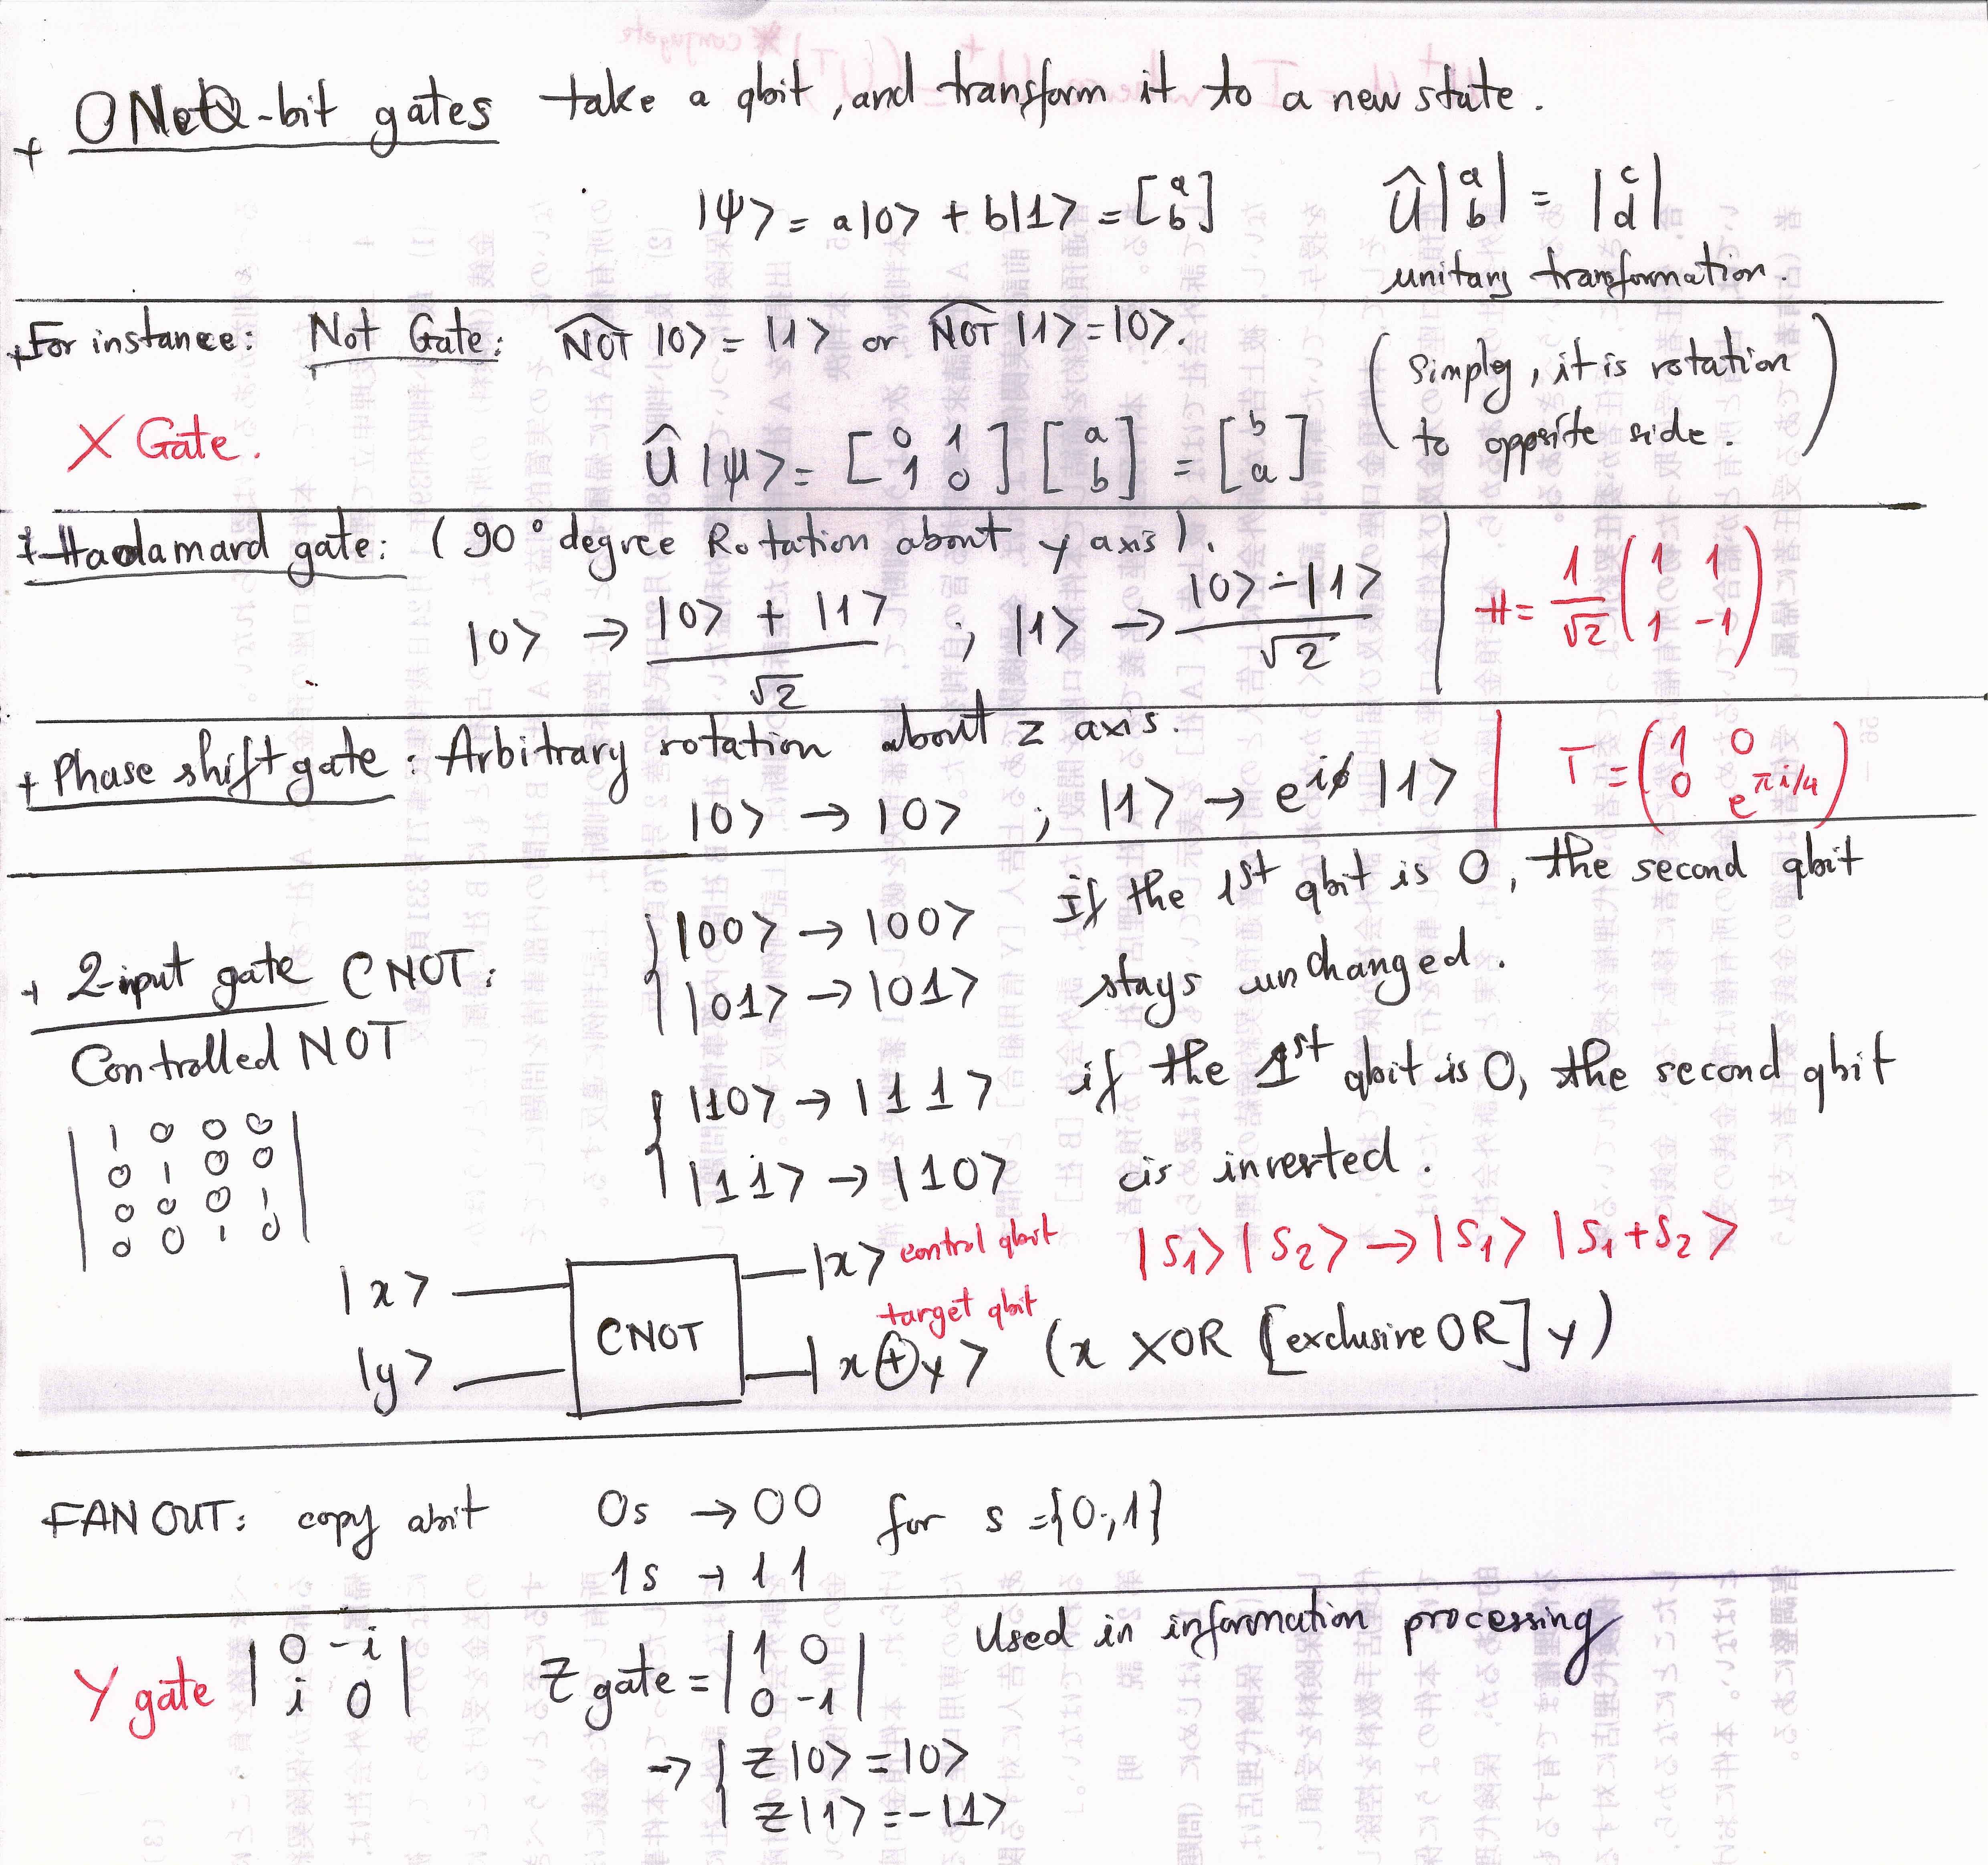 + ONeQ-bit gates take a qbit, and transform it to a new state.
|ψ> = a|0> + b|1> = [a b]
Û |a b| = |c d|
unitary transformation.
+ For instance: Not Gate: NOT |0> = |1> or NOT |1> = |0>.
(Simply, it is rotation
to opposite side.)
X Gate.
Û |ψ> = [0 1
1 0] [a
b] = [b
a]
+ Hadamard gate: (90° degree Rotation about y axis).
|0> → |0> + |1> / √2 ; |1> → |0> - |1> / √2
H = 1/√2 (1 1
1 -1)
+ Phase shift gate: Arbitrary rotation about z axis.
|0> → |0> ; |1> → e^iφ |1>
T = (1 0
0 e^πi/4)
+ 2-input gate CNOT:
Controlled NOT
|00> → |00> If the 1st qbit is 0, the second qbit
|01> → |01> stays unchanged.
|10> → |111> if the 1st qbit is 0, the second qbit
|11> → |10> is inverted.
1 0 0 0
0 1 0 0
0 0 0 1
0 0 1 0
|x> CNOT |x> control qbit
|y> target qbit |x⊕y> (x XOR [exclusive OR] y)
|S1>|S2> → |S1> |S1+S2>
FAN OUT: copy abit 0s → 00 for s = {0,1}
1s → 11
Y gate |0 -i
i 0|
Z gate = |1 0
0 -1|
Used in information processing
→ Z|0> = |0>
Z|1> = -|1>